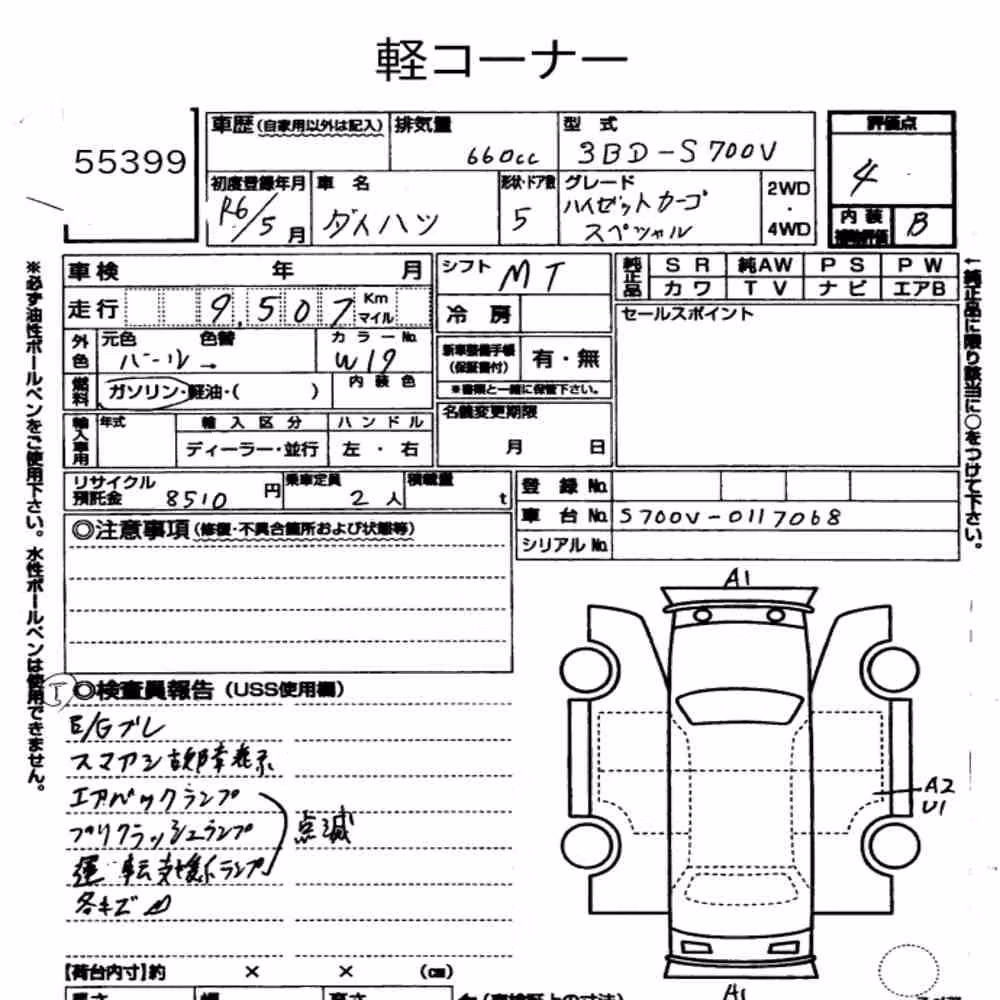 軽コーナー
55399
車歴(自家用以外は記入)
排気量
660cc
型 式
3BD-S700V
評価点
4
内 装
B
初度登録年月
R6/5月
車 名
ダイハツ
形状・ドア数
5
グレード
ハイゼットカーゴ
スペシャル
2WD
・
4WD
車検 年 月
走行 9,507 Km
マイル
シフト MT
冷 房
純正品
SR 純AW PS PW
カワ TV ナビ エアB
セールスポイント
外色
元色 色替
パール →
カラーNo.
W19
新車整備手帳
(保証書付)
有・無
※書類と一緒に保管下さい。
燃料
ガソリン・軽油・( )
内装色
名義変更期限
月 日
輸入車用
年式
輸入区分
ディーラー・並行
ハンドル
左・右
リサイクル
預託金 8510円
乗車定員
2人
積載量
t
登録No.
車台No. S700V-0117068
シリアルNo.
◎注意事項(修復・不具合箇所および状態等)
◎検査員報告(USS使用欄)
E/Gブレ
スマアシ故障表示
エアバックランプ
プリクラッシュランプ
運転支援ランプ
点滅
各キズ凹
A1
A2
U1
A1
【荷台内寸】約 × × (cm)
※必ず油性ボールペンをご使用下さい。水性ボールペンは使用できません。
↑純正品に限り該当に○をつけて下さい。